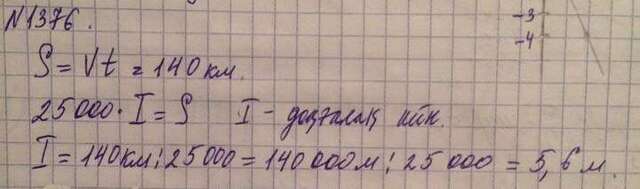 N 1376.
-3
-4
S = Vt = 140 км.
25 000 · I = S I - доңғалақ айн.
I = 140 км : 25 000 = 140 000 м : 25 000 = 5,6 м.